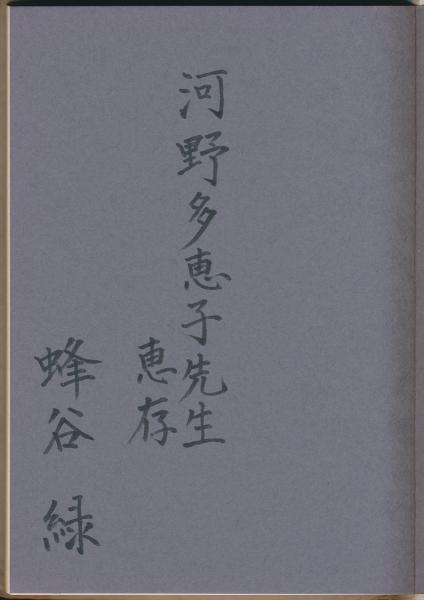 河野多恵子先生
恵存
蜂谷 緑